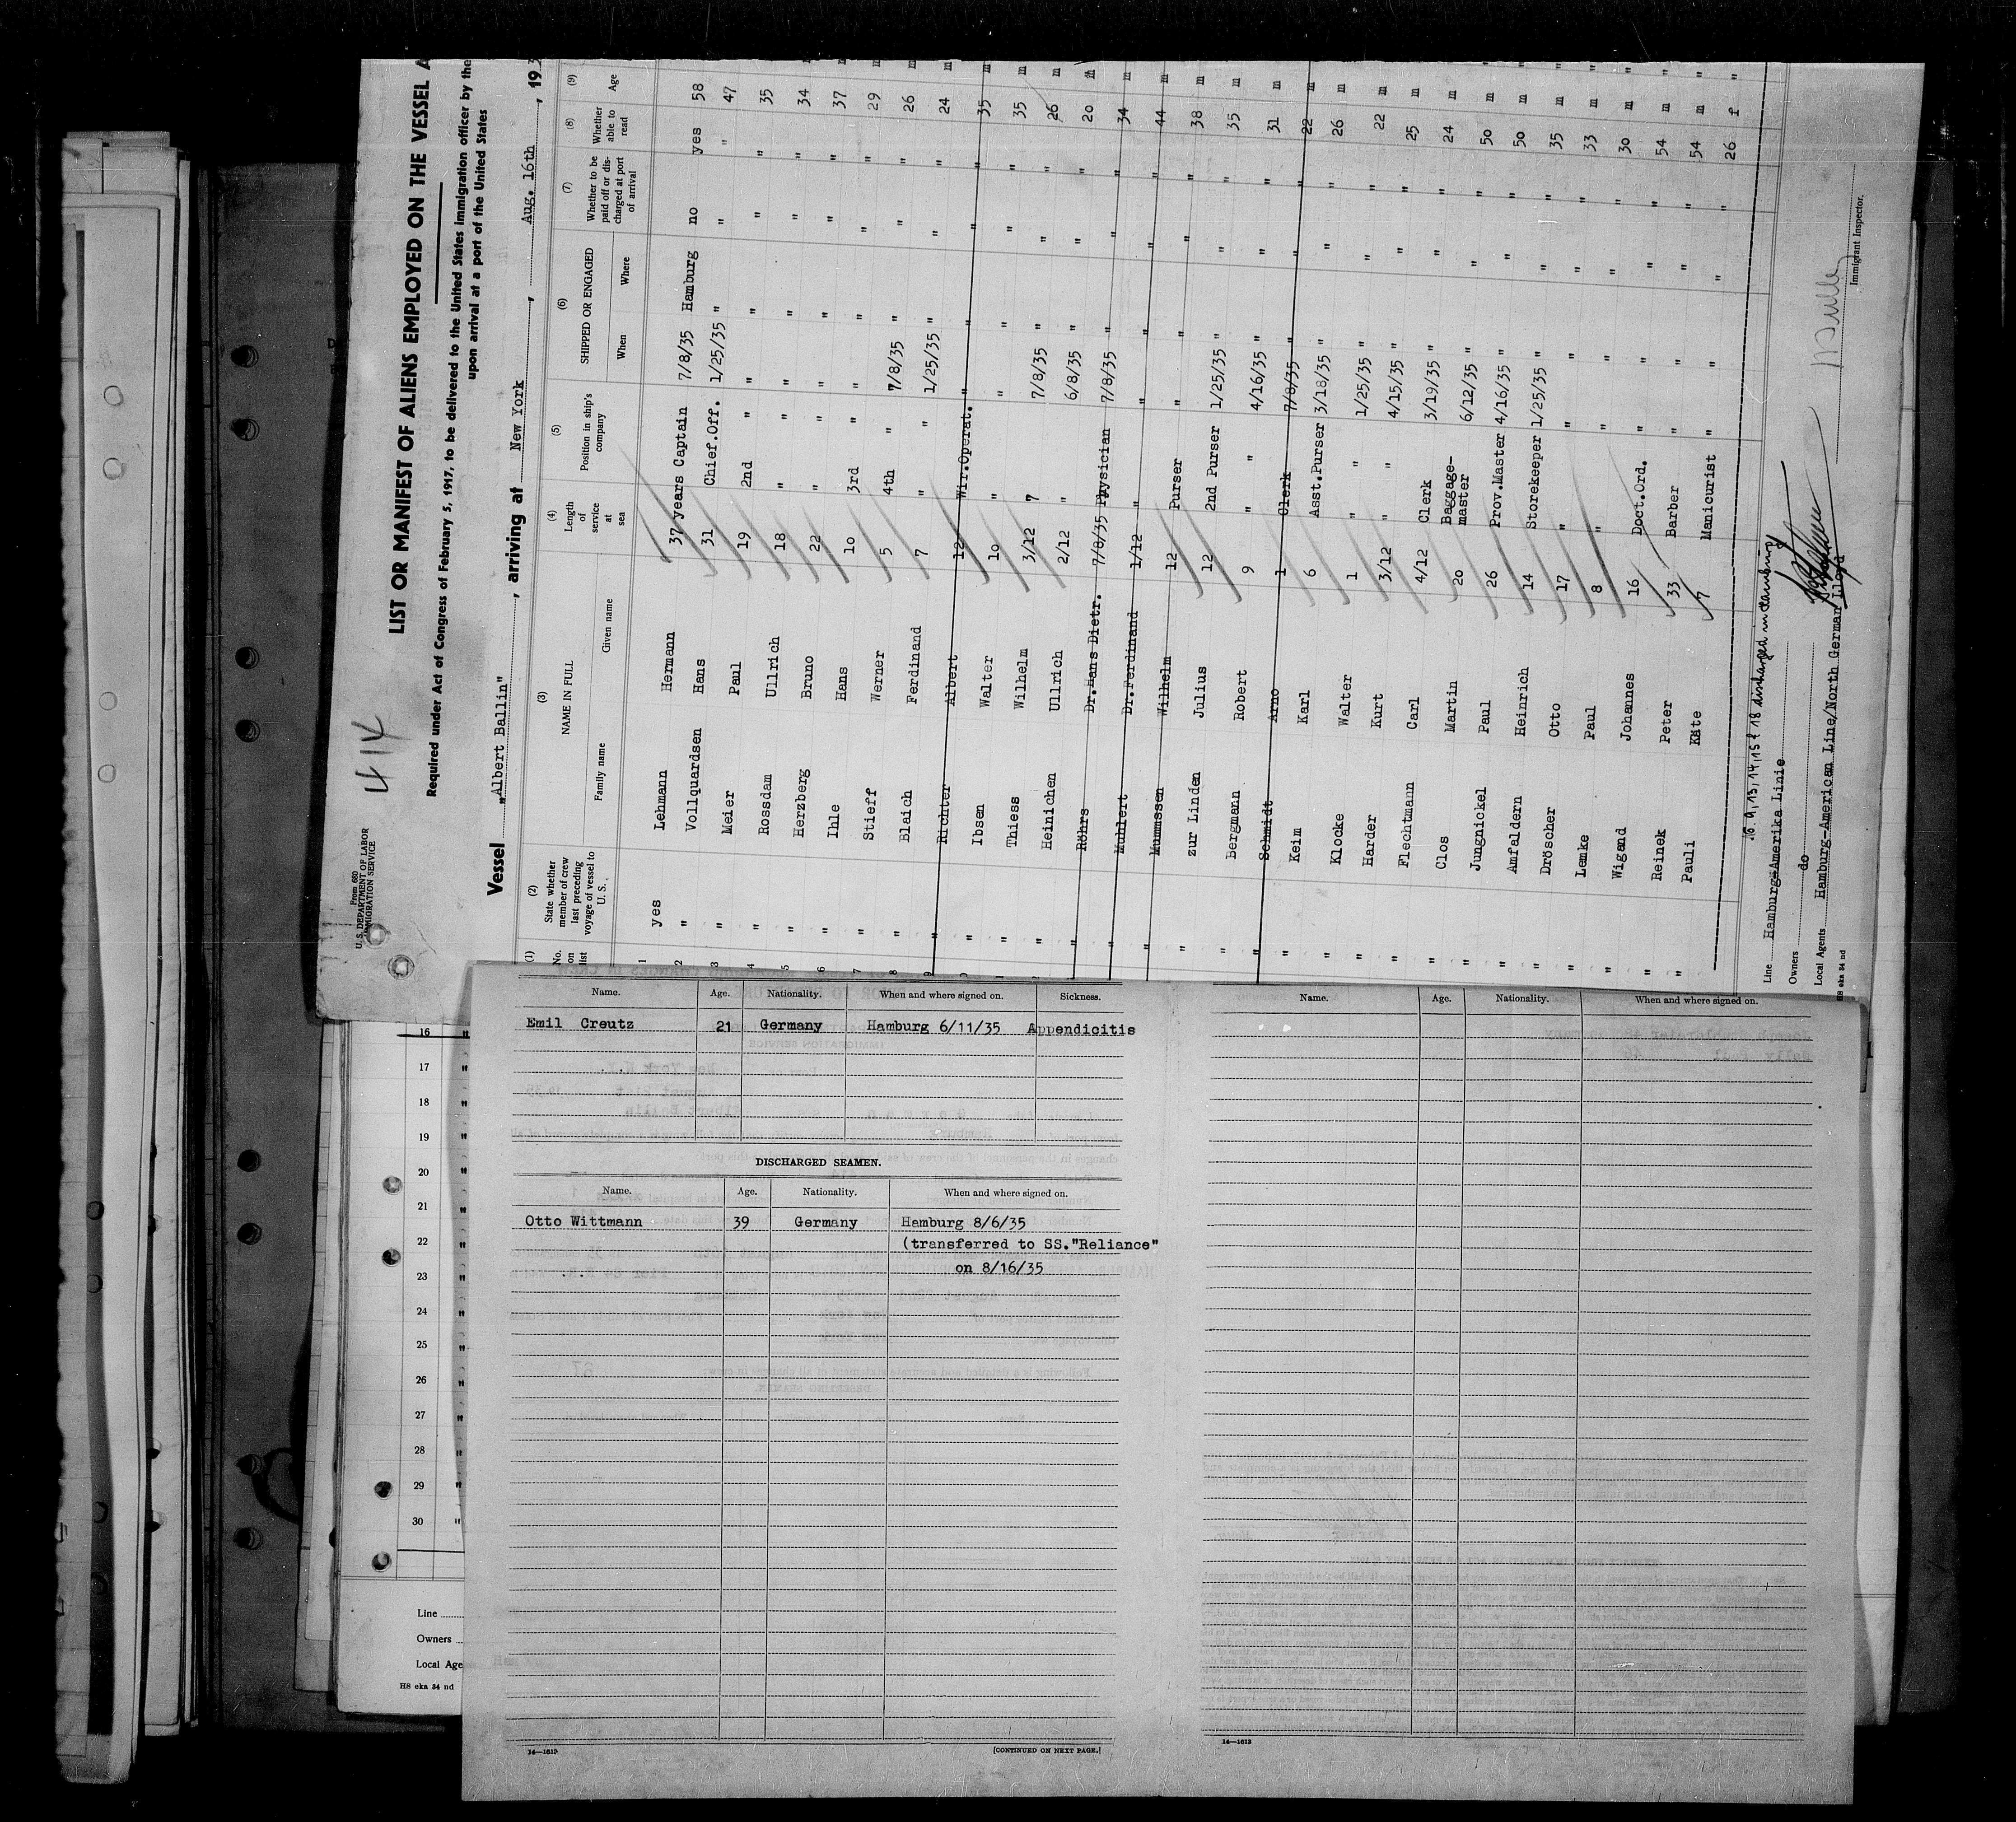 414
Form 680
U. S. DEPARTMENT OF LABOR
IMMIGRATION SERVICE
LIST OR MANIFEST OF ALIENS EMPLOYED ON THE VESSEL A
Required under Act of Congress of February 5, 1917, to be delivered to the United States immigration officer by the
upon arrival at a port of the United States
Vessel „Albert Ballin", arriving at New York, Aug. 16th, 193
(1) (2) (3) (4) (5) (6) (7) (8) (9)
No. on list State whether member of crew last preceding voyage of vessel to U. S. NAME IN FULL Family name Given name Length of service at sea Position in ship's company SHIPPED OR ENGAGED When Where Whether to be paid off or discharged at port of arrival Whether able to read Age
1 yes Lehmann Hermann 37 years Captain 7/8/35 Hamburg no yes 58 m
2 " Vollquardsen Hans 31 Chief.Off. 1/25/35 " " " 47 m
3 " Meier Paul 19 2nd " " " " " 35 m
4 " Rossdam Ullrich 18 " " " " " " 34 m
5 " Herzberg Bruno 22 " " " " " " 37 m
6 " Ihle Hans 10 3rd " " " " " 29 m
7 " Stieff Werner 5 4th " 7/8/35 " " " 26 m
8 " Blaich Ferdinand 7 " " 1/25/35 " " " 24 m
9 " Richter Albert 12 Wir.Operat. " " " " 35 m
10 " Ibsen Walter 10 " " " " " 35 m
11 " Thiess Wilhelm 3/12 " 7/8/35 " " " 26 m
12 " Heinichen Ullrich 2/12 " 6/8/35 " " " 20 m
13 " Röhrs Dr.Hans Dietr. 7/8/35 Physician 7/8/35 " " " 34 m
14 " Mühlert Dr.Ferdinand 1/12 " " " " " 44 m
15 " Mummssen Wilhelm 12 Purser " " " " 38 m
" zur Linden Julius 12 2nd Purser 1/25/35 " " " 35 m
" Bergmann Robert 9 " " 4/16/35 " " " 31 m
" Schmidt Arno 1 Clerk 7/8/35 " " " 22 m
" Keim Karl 6 Asst.Purser 3/18/35 " " " 26 m
" Klocke Walter 1 " " 1/25/35 " " " 22 m
" Harder Kurt 3/12 " " 4/15/35 " " " 25 m
" Flechtmann Carl 4/12 Clerk 3/19/35 " " " 24 m
" Clos Martin 20 Baggage-master 6/12/35 " " " 50 m
" Jungnickel Paul 26 Prov.Master 4/16/35 " " " 50 m
" Amfaldern Heinrich 14 Storekeeper 1/25/35 " " " 35 m
" Dröscher Otto 17 " " " " " 33 m
" Lemke Paul 8 " " " " " 30 m
" Wigand Johannes 16 Doct.Ord. " " " " 54 m
" Reinek Peter 33 Barber " " " " 54 m
" Pauli Käte 7 Manicurist " " " " 26 f
9, 13, 14, 15 & 18 discharged in Hamburg
Line Hamburg-Amerika Linie
Owners do
Local Agents Hamburg-American Line/North German Lloyd
Immigrant Inspector.
H8 eka 34 nd
Name. Age. Nationality. When and where signed on. Sickness.
Emil Creutz 21 Germany Hamburg 6/11/35 Appendicitis
DISCHARGED SEAMEN.
Name. Age. Nationality. When and where signed on.
Otto Wittmann 39 Germany Hamburg 8/6/35
(transferred to SS."Reliance"
on 8/16/35
14—1613
[CONTINUED ON NEXT PAGE.]
Name. Age. Nationality. When and where signed on.
14—1613
16 "
17 "
18 "
19 "
20 "
21 "
22 "
23 "
24 "
25 "
26 "
27 "
28 "
29 "
30 "
Line
Owners
Local Age
H8 eka 34 nd